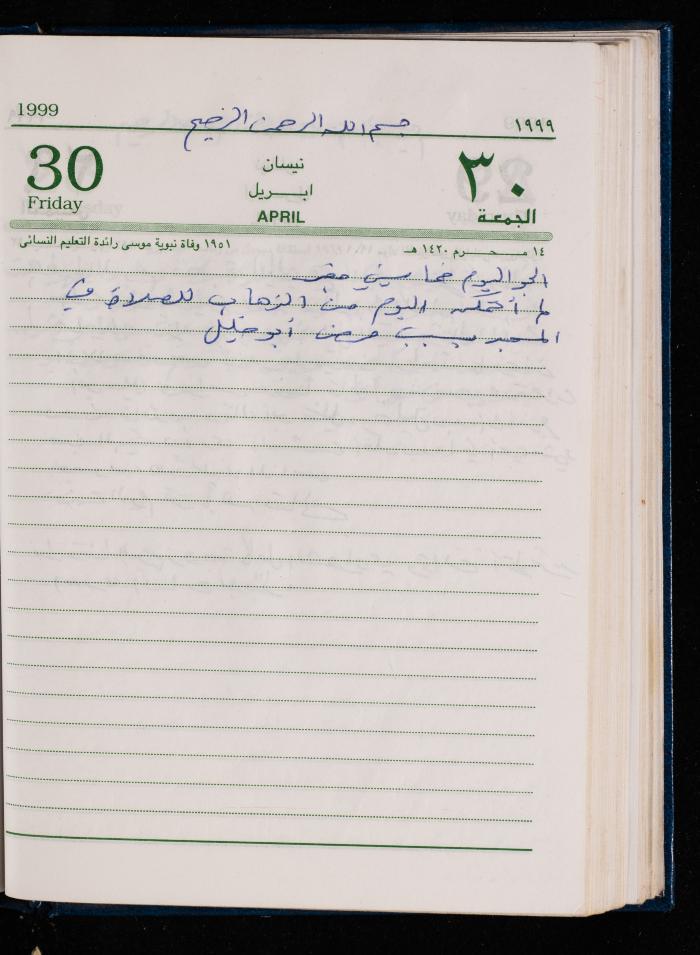 1999
بسم الله الرحمن الرحيم
١٩٩٩
30
Friday
نيسان
ابريل
APRIL
٣٠
الجمعة
١٤ محرم ١٤٢٠ هـ
١٩٥١ وفاة نبوية موسى رائدة التعليم النسائى
الجو اليوم خماسيني
لم أتمكن اليوم من الذهاب للصلاة في
المسجد بسبب مرض أبو خليل